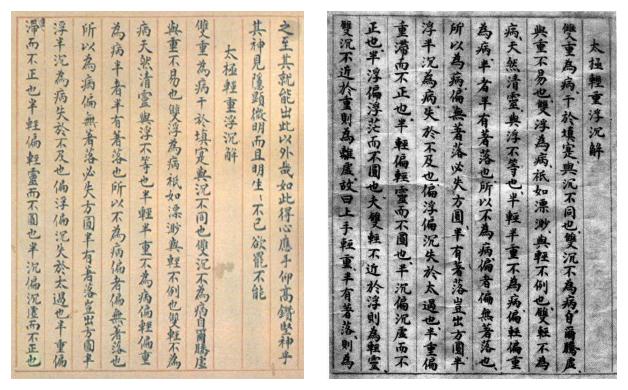 之至其孰能出此以外哉如此得心應手仰高鑽堅神乎
其神見隱顯微明而且明生〻不已欲罷不能
太極輕重浮沉解
雙重為病干於填寔與沉不同也雙沉不為病自爾騰虛
與重不易也雙浮為病祇如漂渺與輕不例也雙輕不為
病天然清靈與浮不等也半輕半重不為病偏輕偏重
為病半者半有著落也所以不為病偏者偏無著落也
所以為病偏無著落必失方圓半有著落豈出方圓半
浮半沉為病失於不及也偏浮偏沉失於太過也半重偏
滯而不正也半輕偏輕靈而不圓也半沉偏沉虛而不正也
太極輕重浮沉解
雙重為病干於填寔與沉不同也雙沉不為病自爾騰虛
與重不易也雙浮為病祇如漂渺與輕不例也雙輕不為
病天然清靈與浮不等也半輕半重不為病偏輕偏重
為病半者半有著落也所以不為病偏者偏無著落也
所以為病偏無著落必失方圓半有著落豈出方圓半
浮半沉為病失於不及也偏浮偏沉失於太過也半重偏
重滯而不正也半輕偏輕靈而不圓也半沉偏沉虛而不
正也半浮偏浮茫而不圓也夫雙輕不近於浮則為輕靈
雙沉不近於重則為離虛故曰上手輕重半有著落則為